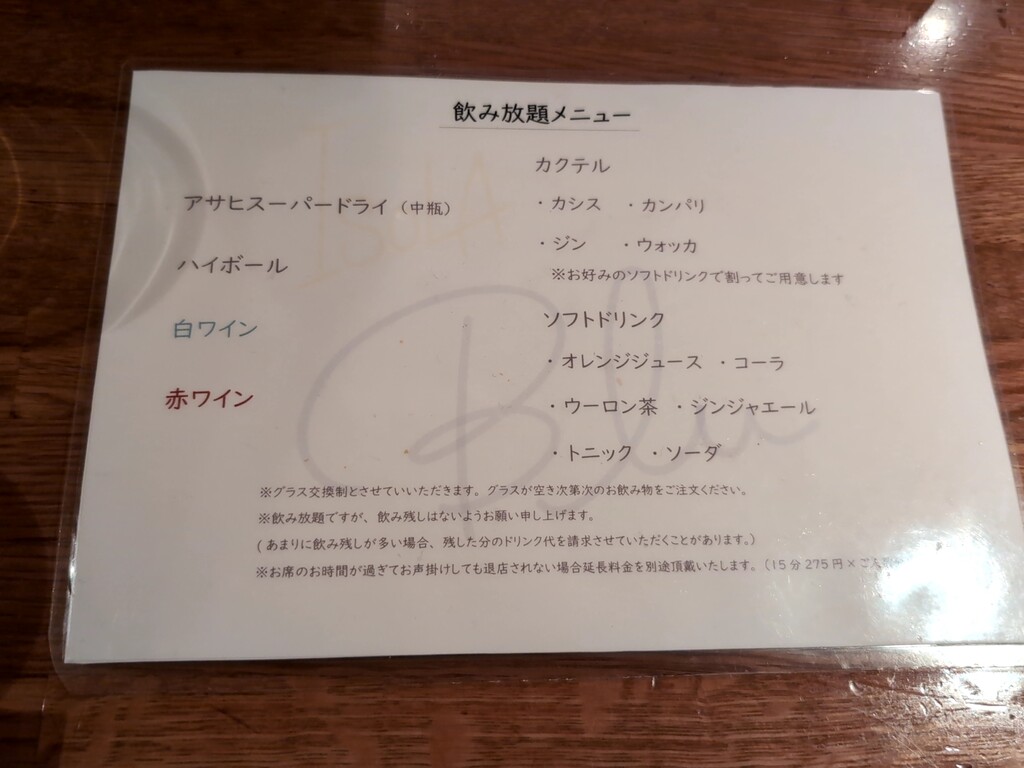 飲み放題メニュー
アサヒスーパードライ（中瓶）
ハイボール
白ワイン
赤ワイン
カクテル
・カシス ・カンパリ
・ジン ・ウォッカ
※お好みのソフトドリンクで割ってご用意します
ソフトドリンク
・オレンジジュース ・コーラ
・ウーロン茶 ・ジンジャエール
・トニック ・ソーダ
※グラス交換制とさせていいただきます。グラスが空き次第次のお飲み物をご注文ください。
※飲み放題ですが、飲み残しはないようお願い申し上げます。
(あまりに飲み残しが多い場合、残した分のドリンク代を請求させていただくことがあります。)
※お席のお時間が過ぎてお声掛けしても退店されない場合延長料金を別途頂戴いたします。（15分275円×ご
ISOLA
Blu